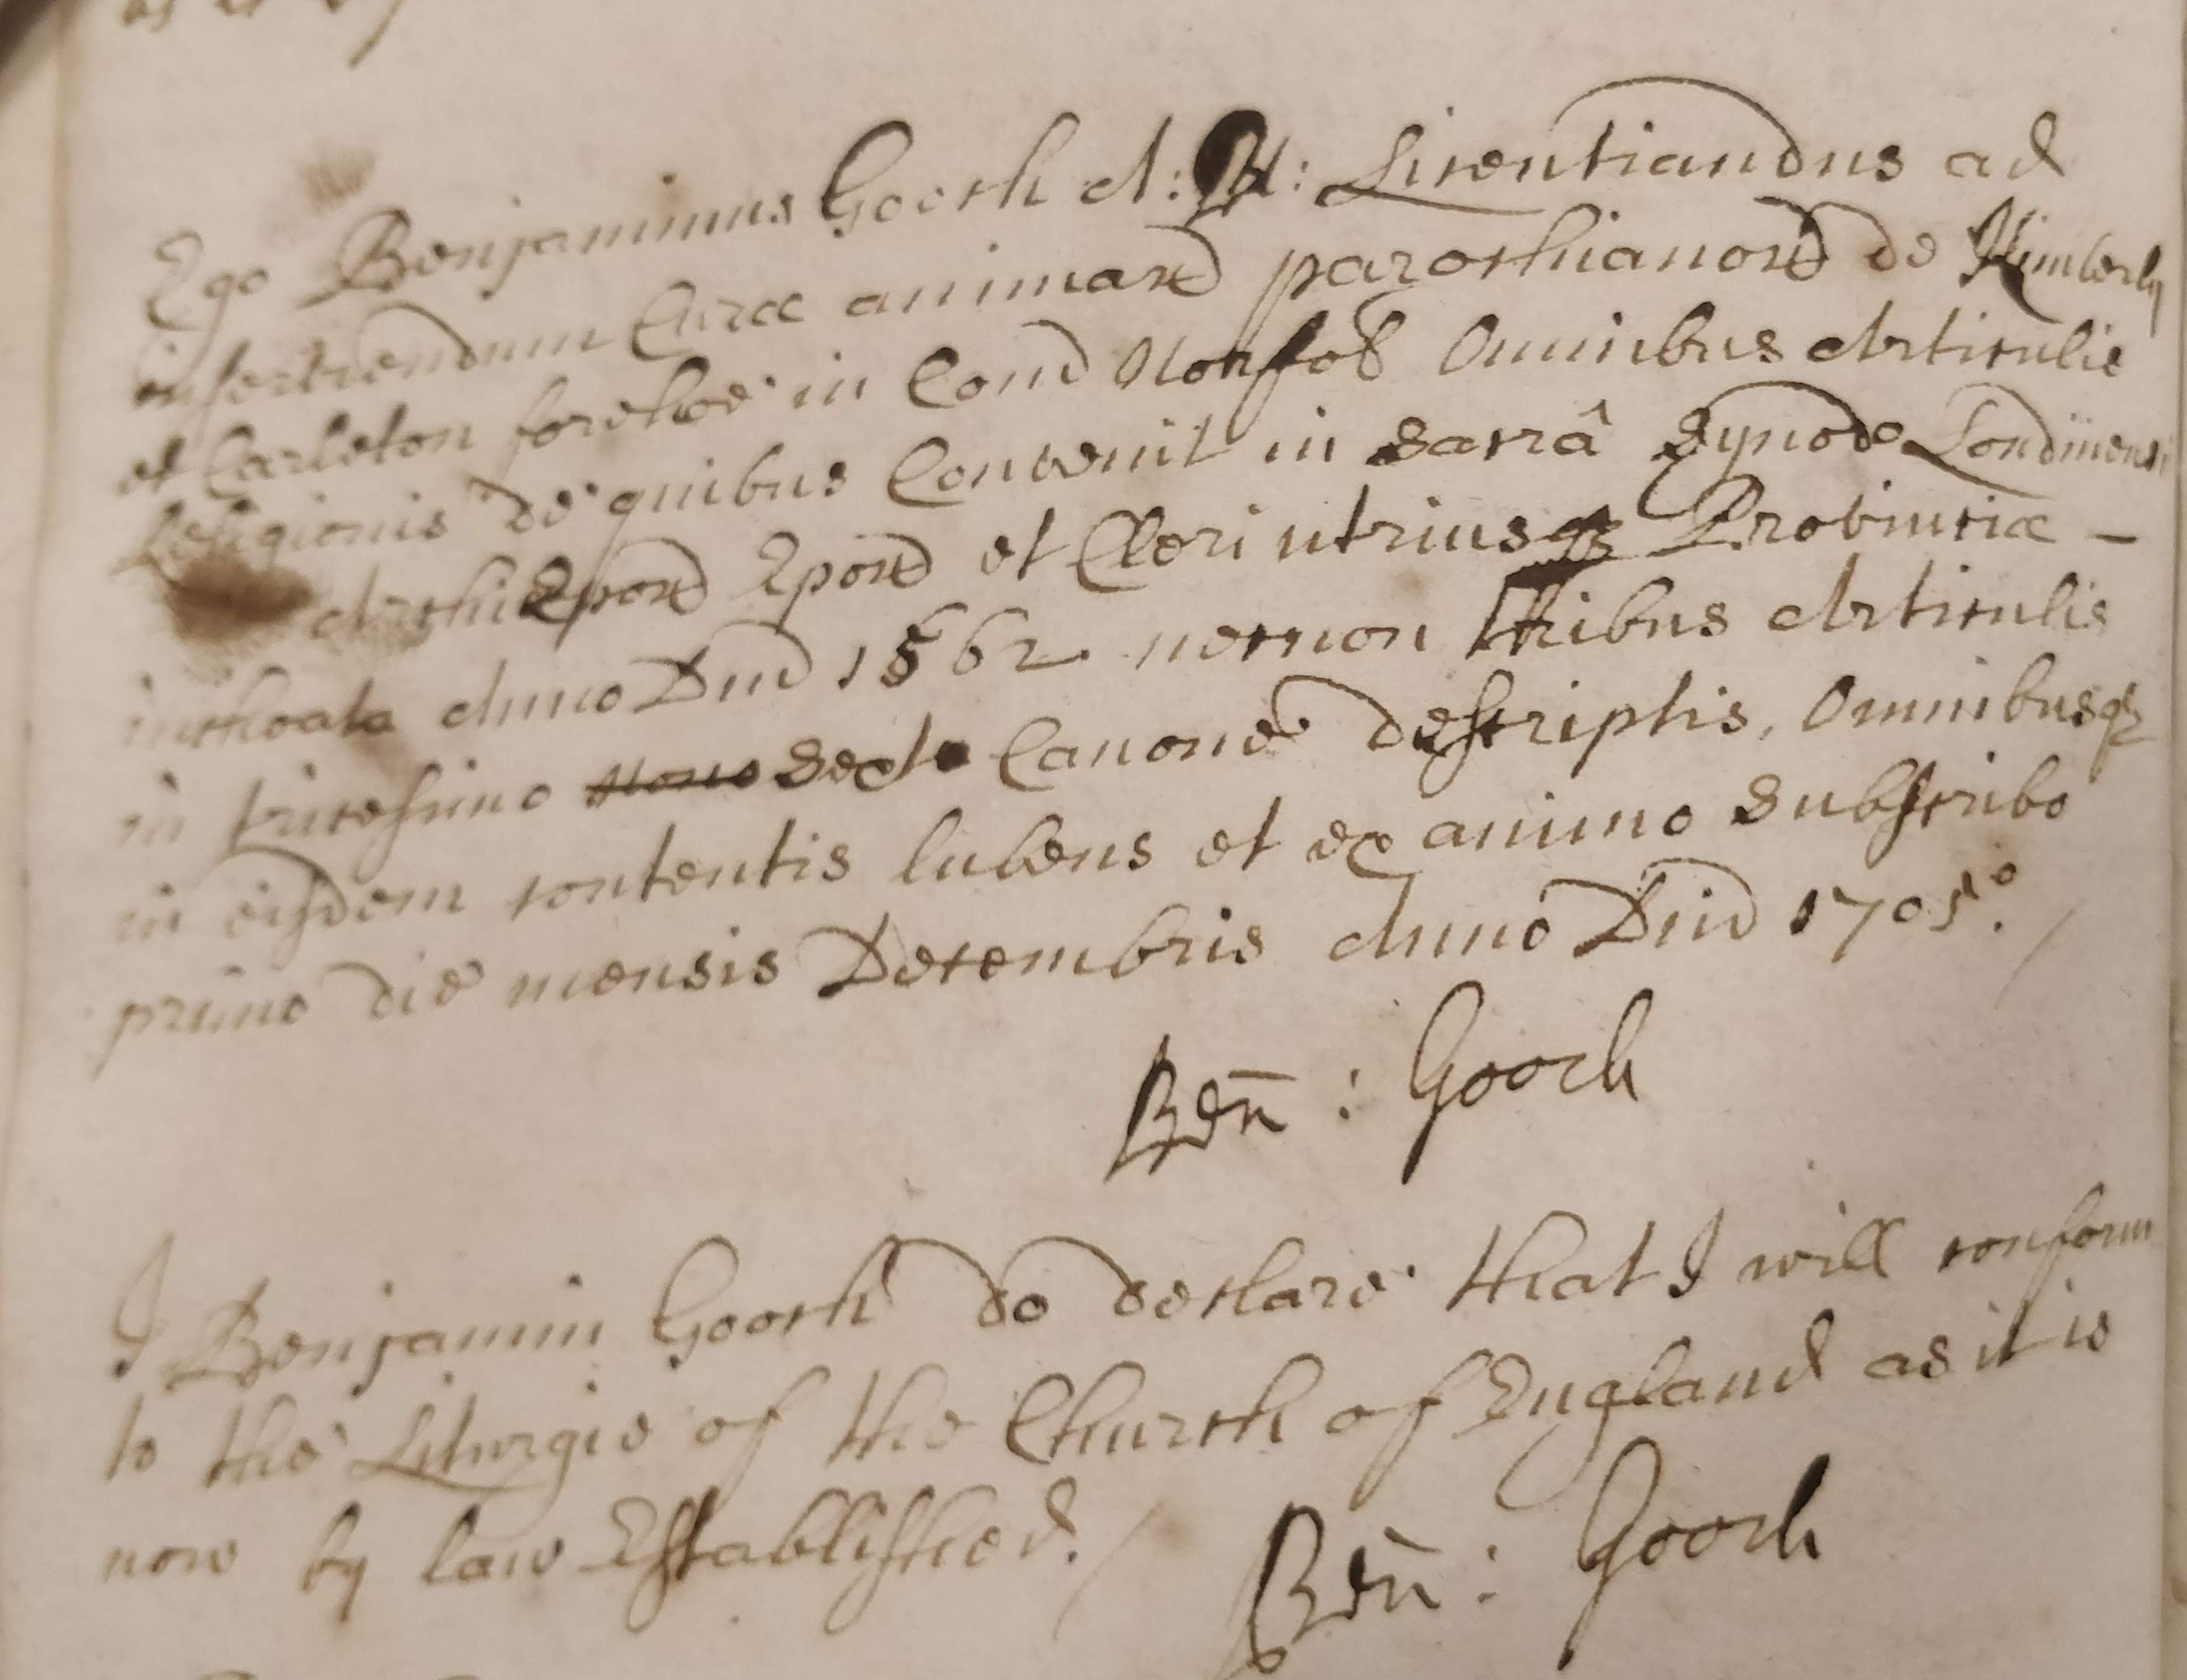 Ego Benjaminus Gooch A: B: Licentiandus ad
inserviendum Curæ animar̄ parochianor̄ de Kimberly
et Carleton forehoe in Com̄ Norfol̄ Omnibus Articulis
Religionis de quibus Convenit in Sacrâ Synodo Londinensi
ArchiEpor̄ Epor̄ et Cleri utriusqꝫ Provinciæ -
inchoata Anno Dn̄i 1562 necnon tribus Articulis
in tricesimo nono Sexto Canone descriptis, Omnibusqꝫ
in eisdem contentis lubens et ex animo Subscribo
primo die mensis Decembris Anno Dn̄i 1705°.
Ben̄ : Gooch
I Benjamin Gooch do declare that I will conform
to the Liturgie of the Church of England as it is
now by law Established.
Ben̄ : Gooch